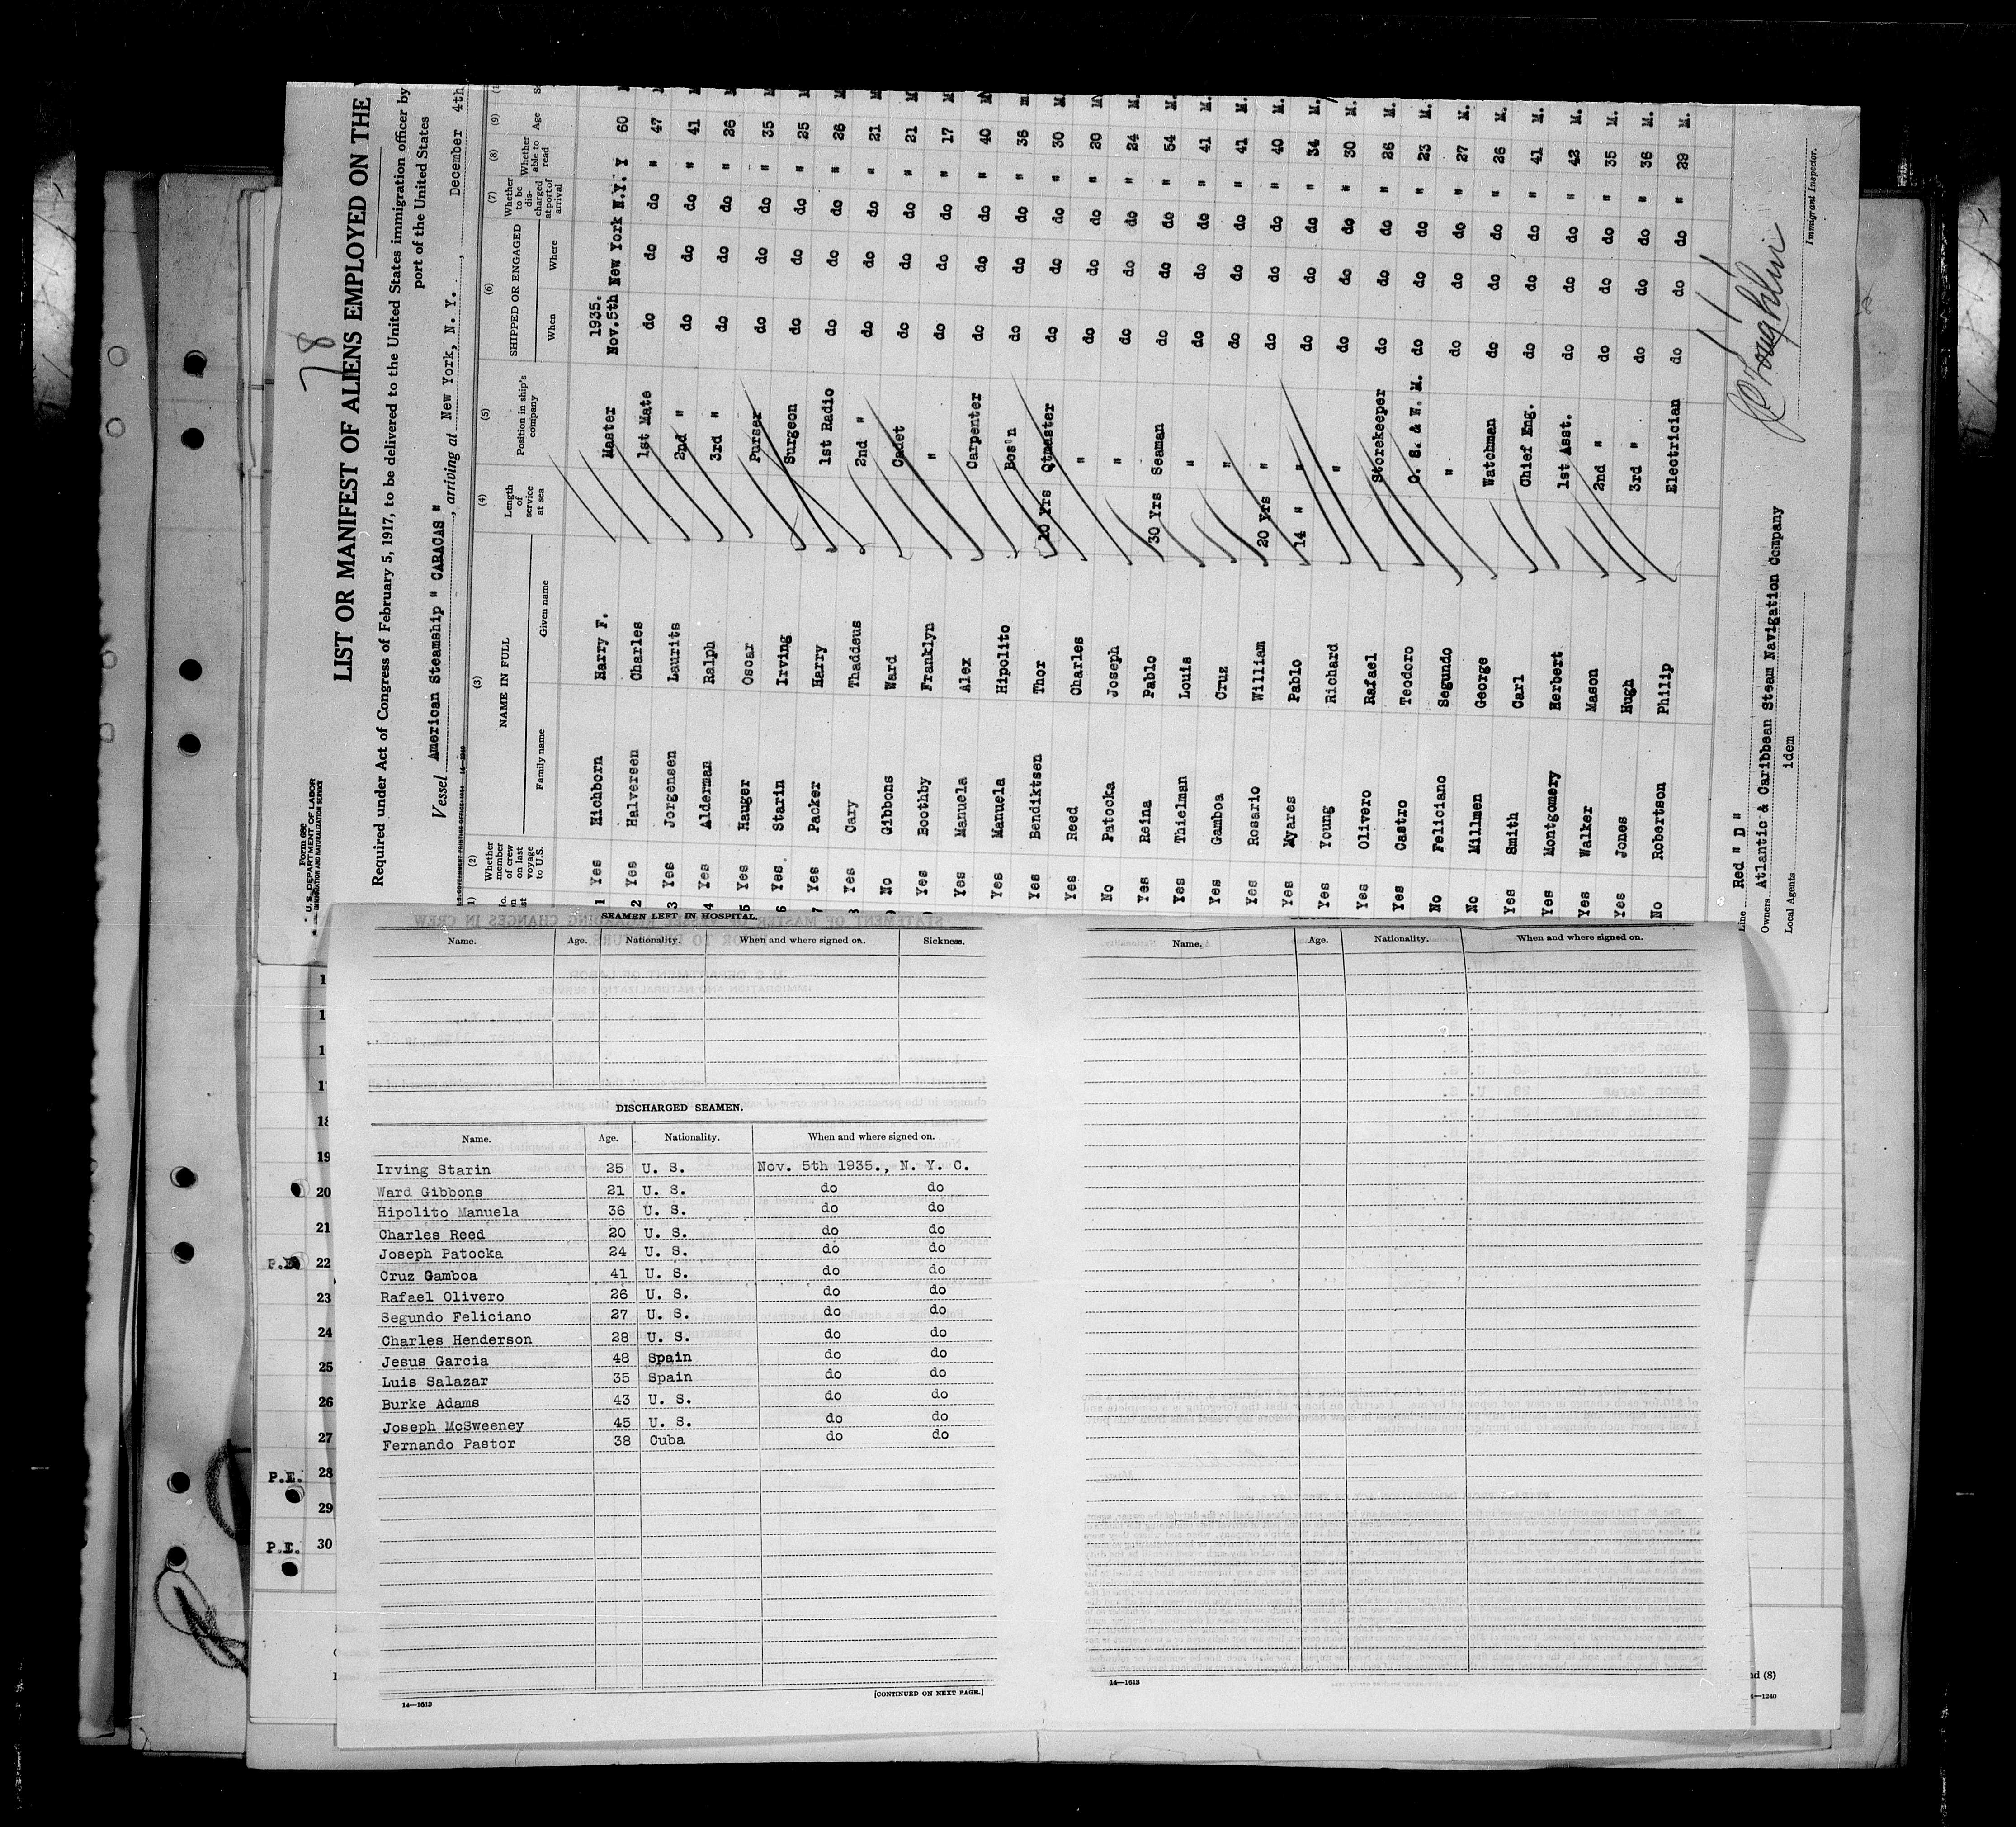 78
Form 680
U. S. DEPARTMENT OF LABOR
IMMIGRATION AND NATURALIZATION SERVICE
LIST OR MANIFEST OF ALIENS EMPLOYED ON THE
Required under Act of Congress of February 5, 1917, to be delivered to the United States immigration officer by
port of the United States
Vessel American Steamship " CARACAS " , arriving at New York, N. Y. , December 4th
(2) (3) (4) (5) (6) (7) (8) (9)
Whether member of crew on last voyage to U.S. NAME IN FULL Length of service at sea Position in ship's company SHIPPED OR ENGAGED Whether to be discharged at port of arrival Whether able to read Age
Family name Given name When Where
1935.
1 Yes Hichborn Harry F. Master Nov.5th New York N.Y. Y 60
2 Yes Halversen Charles 1st Mate do do do " 47
3 Yes Jorgensen Laurits 2nd " do do do " 41
4 Yes Alderman Ralph 3rd " do do do " 26
5 Yes Hauger Oscar Purser do do do " 35
6 Yes Starin Irving Surgeon do do do " 25
7 Yes Packer Harry 1st Radio do do do " 26
8 Yes Cary Thaddeus 2nd " do do do " 21
No Gibbons Ward Cadet do do do " 21
Yes Boothby Franklyn " do do do " 17
Yes Manuela Alex Carpenter do do do " 40
Yes Manuela Hipolito Bos'n do do do " 36
Yes Bendiktsen Thor 10 Yrs Qtmaster do do do " 30 M.
Yes Reed Charles " do do do " 20
No Patocka Joseph " do do do " 24 M.
Yes Reina Pablo 30 Yrs Seaman do do do " 54 M.
Yes Thielman Louis " do do do " 41 M.
Yes Gamboa Cruz " do do do " 41 M.
Yes Rosario William 20 Yrs " do do do " 40 M.
Yes Myares Pablo 14 " " do do do " 34 M.
Yes Young Richard " do do do " 30 M.
Yes Olivero Rafael Storekeeper do do do " 26 M.
Yes Castro Teodoro C. S. & W. M. do do do " 23 M.
No Feliciano Segundo " do do do " 27 M.
No Millmen George Watchman do do do " 26 M.
Yes Smith Carl Chief Eng. do do do " 41 M.
Yes Montgomery Herbert 1st Asst. do do do " 42 M.
Yes Walker Mason 2nd " do do do " 35 M.
Yes Jones Hugh 3rd " do do do " 36 M.
No Robertson Philip Electrician do do do " 29 M.
Line Red " D "
Owners Atlantic & Caribbean Steam Navigation Company
Local Agents idem
Immigrant Inspector.
SEAMEN LEFT IN HOSPITAL.
Name. Age. Nationality. When and where signed on. Sickness.
DISCHARGED SEAMEN.
Name. Age. Nationality. When and where signed on.
Irving Starin 25 U. S. Nov. 5th 1935., N. Y. C.
Ward Gibbons 21 U. S. do do
Hipolito Manuela 36 U. S. do do
Charles Reed 20 U. S. do do
Joseph Patocka 24 U. S. do do
Cruz Gamboa 41 U. S. do do
Rafael Olivero 26 U. S. do do
Segundo Feliciano 27 U. S. do do
Charles Henderson 28 U. S. do do
Jesus Garcia 48 Spain do do
Luis Salazar 35 Spain do do
Burke Adams 43 U. S. do do
Joseph McSweeney 45 U. S. do do
Fernando Pastor 38 Cuba do do
14—1613
[CONTINUED ON NEXT PAGE.]
Name. Age. Nationality. When and where signed on.
14—1613
18
19
20
21
22
23
24
25
26
27
P.E. 28
29
P.E. 30
nd (8)
—1240